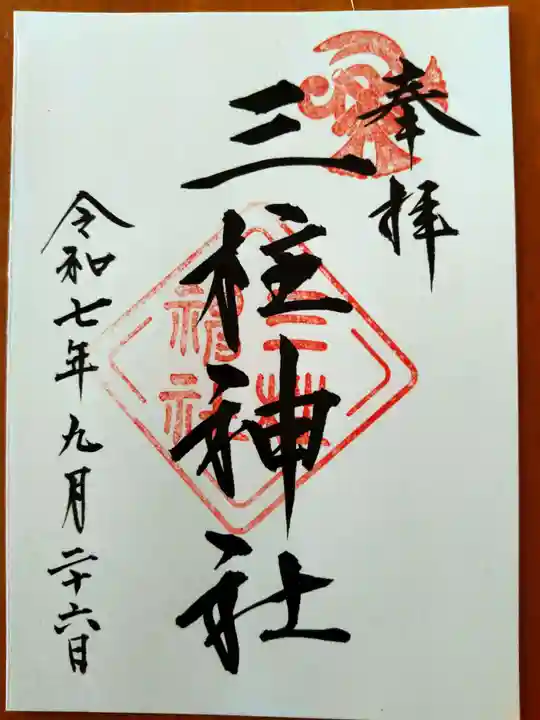 奉拝
三柱神社
令和七年九月二十六日